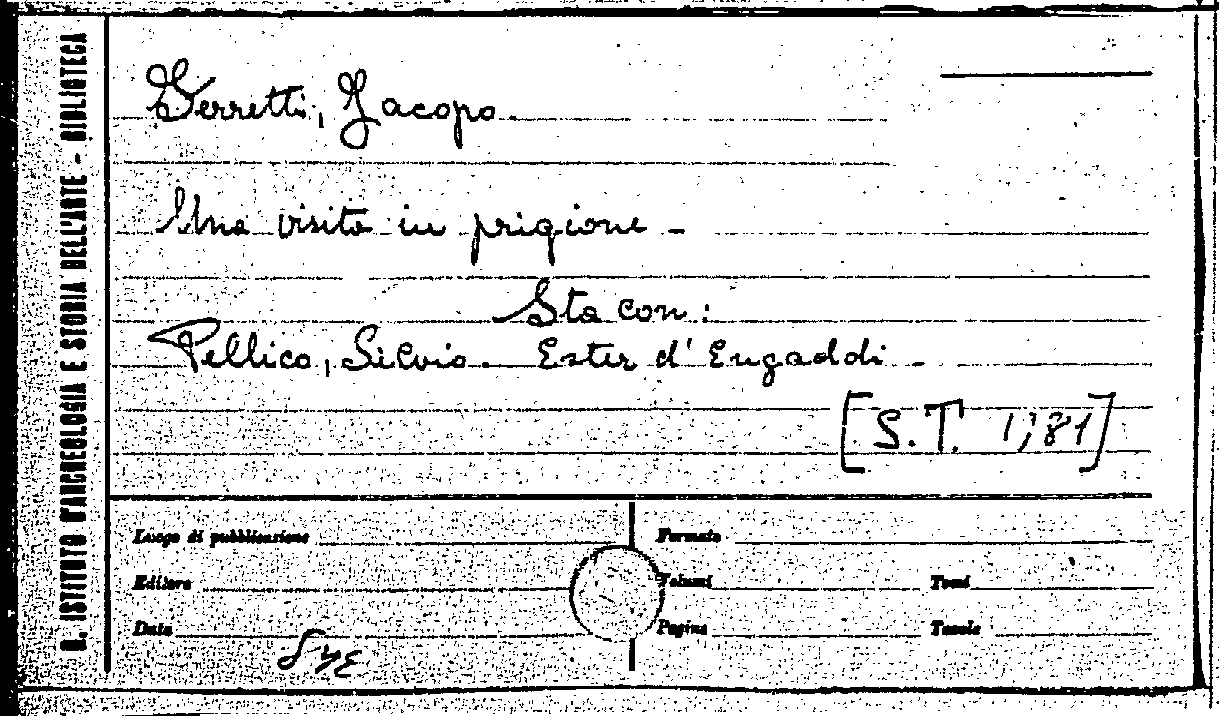 R. ISTITUTO D'ARCHEOLOGIA E STORIA DELL'ARTE - BIBLIOTECA
Ferretti, Jacopo.
Una visita in prigione -
Sta con:
Pellico, Silvio. Ester d'Engaddi -
[S.T. 1,81]
Luogo di pubblicazione
Formato
Editore
Volumi
Tomi
Data
Pagine
Tavole